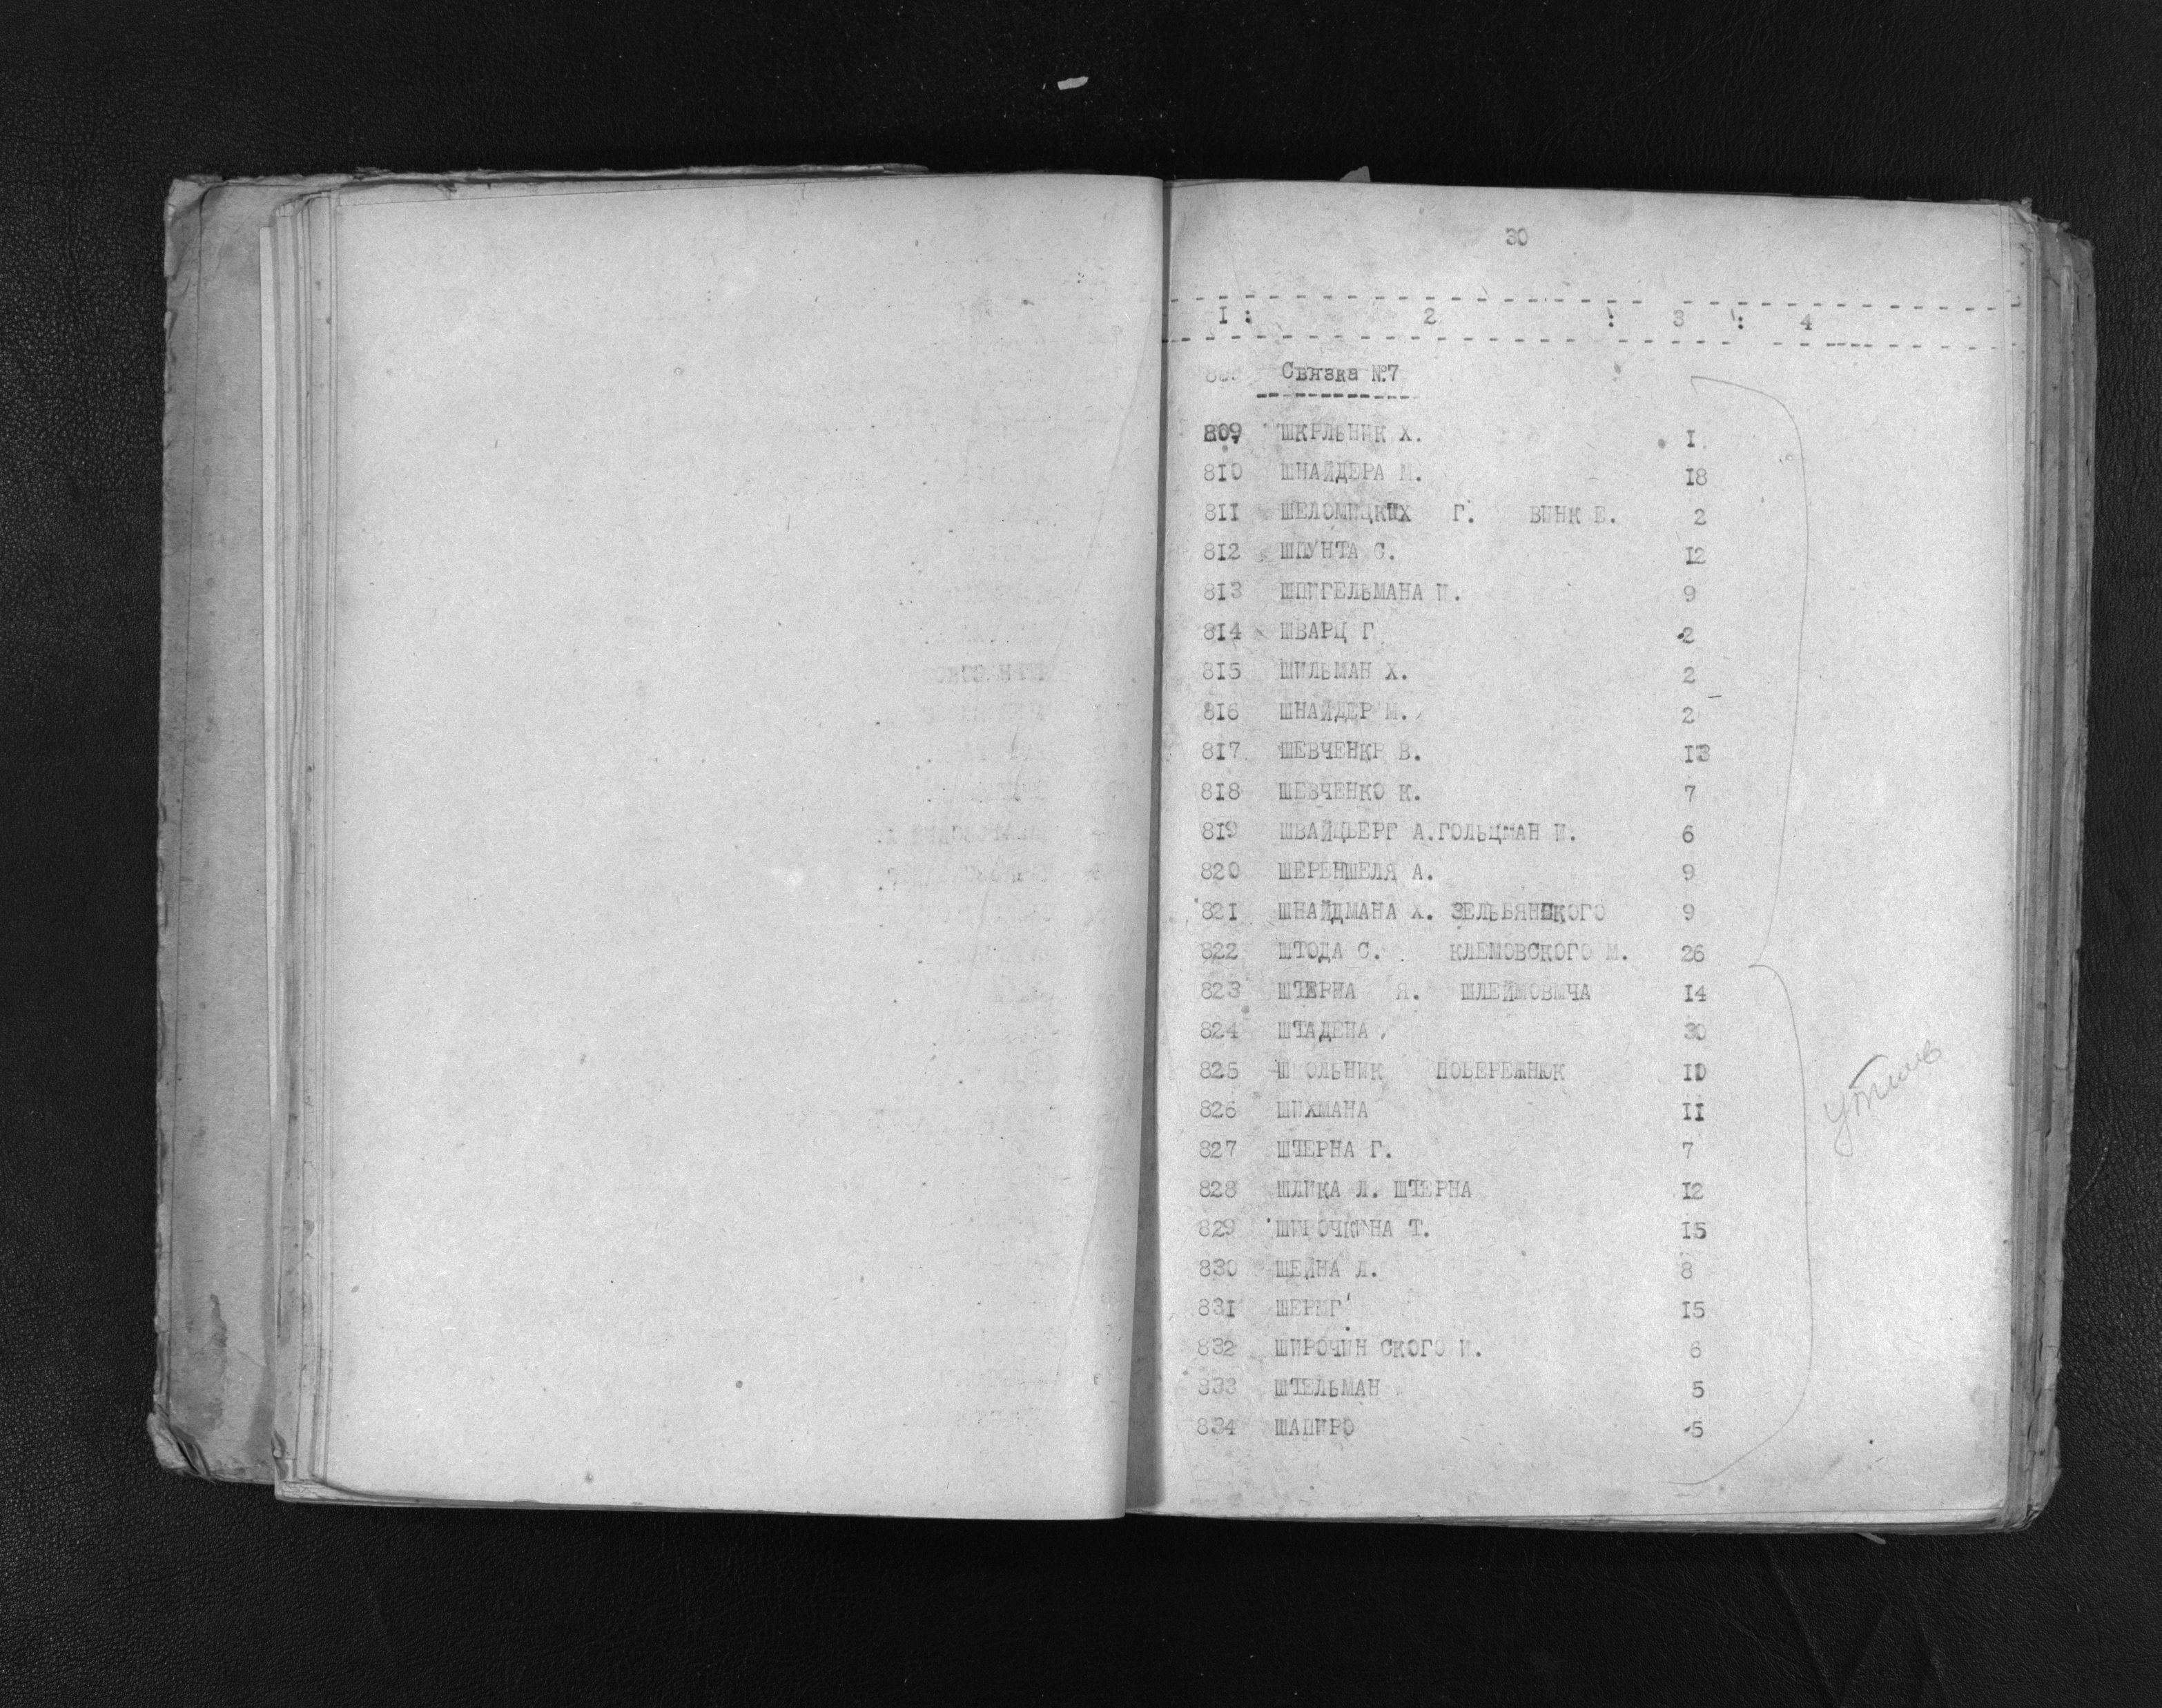 30
I : 2 : 3 : 4
Связка №7
809 ШКРЛЬНИК Х. I
810 ШНАЙДЕРА М. I8
8II ШЕЛОМИЦКИХ Г. ВИНК Е. 2
8I2 ШПУНТА С. I2
8I3 ШПИГЕЛЬМАНА И. 9
8I4 ШВАРЦ Г 2
8I5 ШИЛЬМАН Х. 2
8I6 ШНАЙДЕР М. 2
8I7 ШЕВЧЕНКР В. I3
8I8 ШЕВЧЕНКО К. 7
8I9 ШВАЙЦБЕРГ А.ГОЛЬЦМАН И. 6
820 ШЕРЕНШЕЛЯ А. 9
82I ШНАЙДМАНА Х. 9
822 ШТОДА С. КЛЕМОВСКОГО М. 26
823 ШТЕРНА Я. ШЛЕЙМОВИЧА I4
824 ШТАДЕНА 30
825 Ш ОЛЬНИК ПОБЕРЕЖНЮК I0
826 ШИХМАНА II
827 ШТЕРНА Г. 7
828 ШЛИКА Л. ШТЕРНА I2
829 ШИРОЧКИНА Т. I5
830 ШЕЙНА Л. 8
83I I5
832 ШИРОЧИН СКОГО И. 6
833 ШТЕЛЬМАН 5
834 ШАПИРО 5
утиль